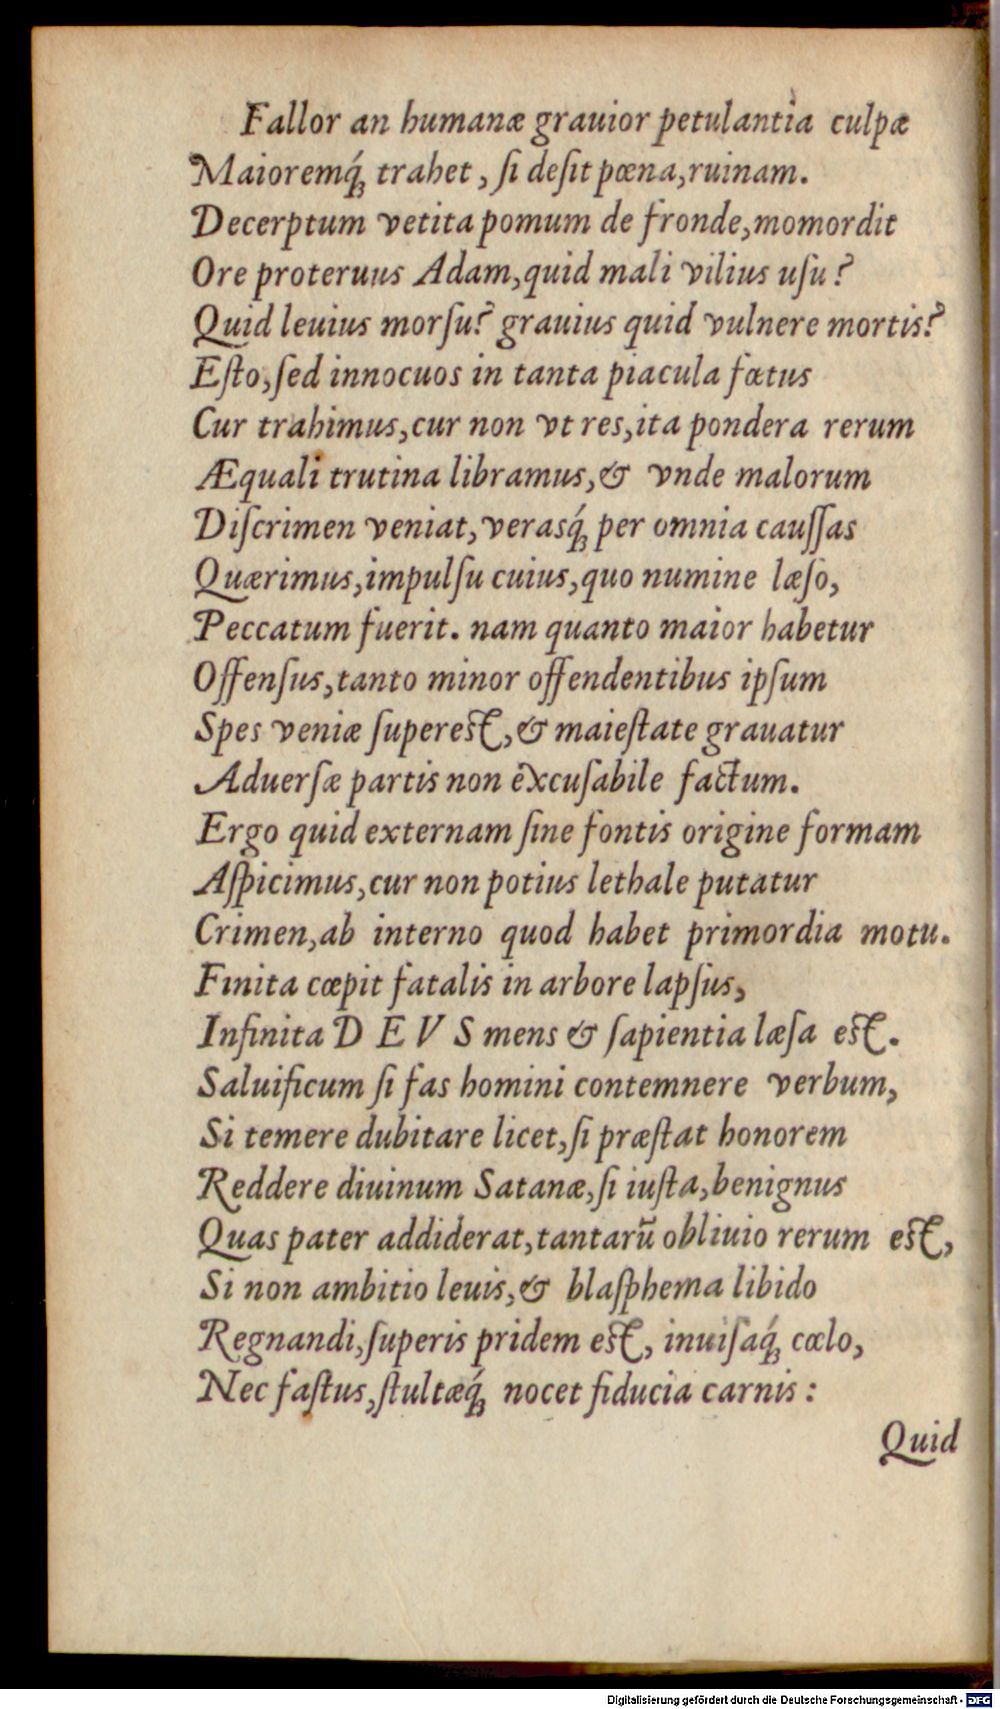 Fallor an humanæ grauior petulantia culpæ
Maioremq́ꝫ trahet, ſi deſit pœna, ruinam.
Decerptum vetita pomum de fronde, momordit
Ore proteruus Adam, quid mali vilius uſu?
Quid leuius morſu? grauius quid vulnere mortis?
Eſto, ſed innocuos in tanta piacula fœtus
Cur trahimus, cur non vt res, ita pondera rerum
Æquali trutina libramus, & vnde malorum
Diſcrimen veniat, verasq́ꝫ per omnia cauſſas
Quærimus, impulſu cuius, quo numine læſo,
Peccatum fuerit. nam quanto maior habetur
Offenſus, tanto minor offendentibus ipſum
Spes veniæ ſupereſt, & maieſtate grauatur
Aduerſæ partis non excuſabile factum.
Ergo quid externam ſine fontis origine formam
Aſpicimus, cur non potius lethale putatur
Crimen, ab interno quod habet primordia motu.
Finita cœpit fatalis in arbore lapſus,
Infinita DEVS mens & ſapientia læſa eſt.
Saluificum ſi fas homini contemnere verbum,
Si temere dubitare licet, ſi præſtat honorem
Reddere diuinum Satanæ, ſi iuſta, benignus
Quas pater addiderat, tantarū obliuio rerum eſt,
Si non ambitio leuis, & blaſphema libido
Regnandi, ſuperis pridem eſt, inuiſaq́ꝫ cœlo,
Nec faſtus, ſtultæq́ꝫ nocet fiducia carnis:
Quid
Digitalisierung gefördert durch die Deutsche Forschungsgemeinschaft - DFG